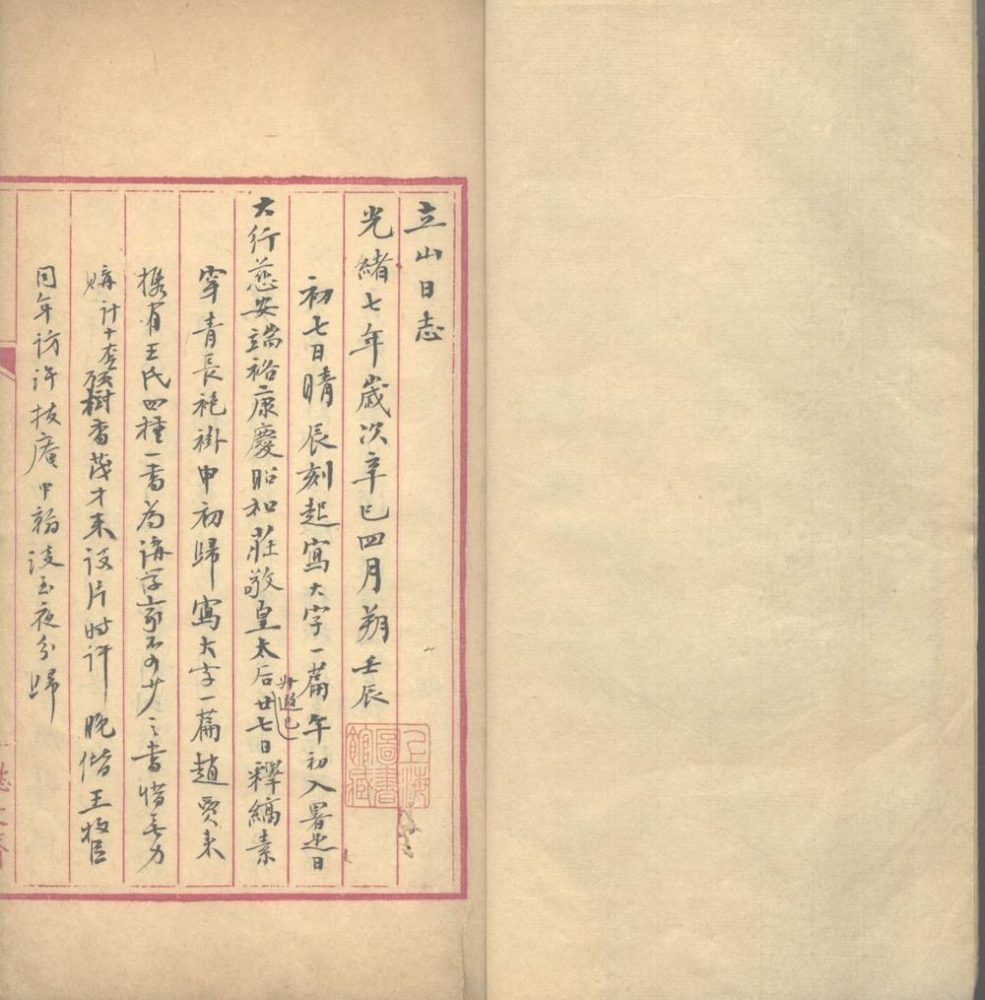 立山日志
光緒七年歲次辛巳四月朔壬辰
初七日晴辰刻起寫大字一篇午初入署是日
大行慈安端裕康慶昭和莊敬皇太后升遐已廿七日釋縞素
穿青長袍褂申初歸寫大字一篇趙賈來
攜有王氏四種一書為講學家不可少之書惜無力
購計十套 樹香茂才來談片時許晚偕王牧臣
同年訪許 庵中翰談至夜分歸
上海圖書館藏